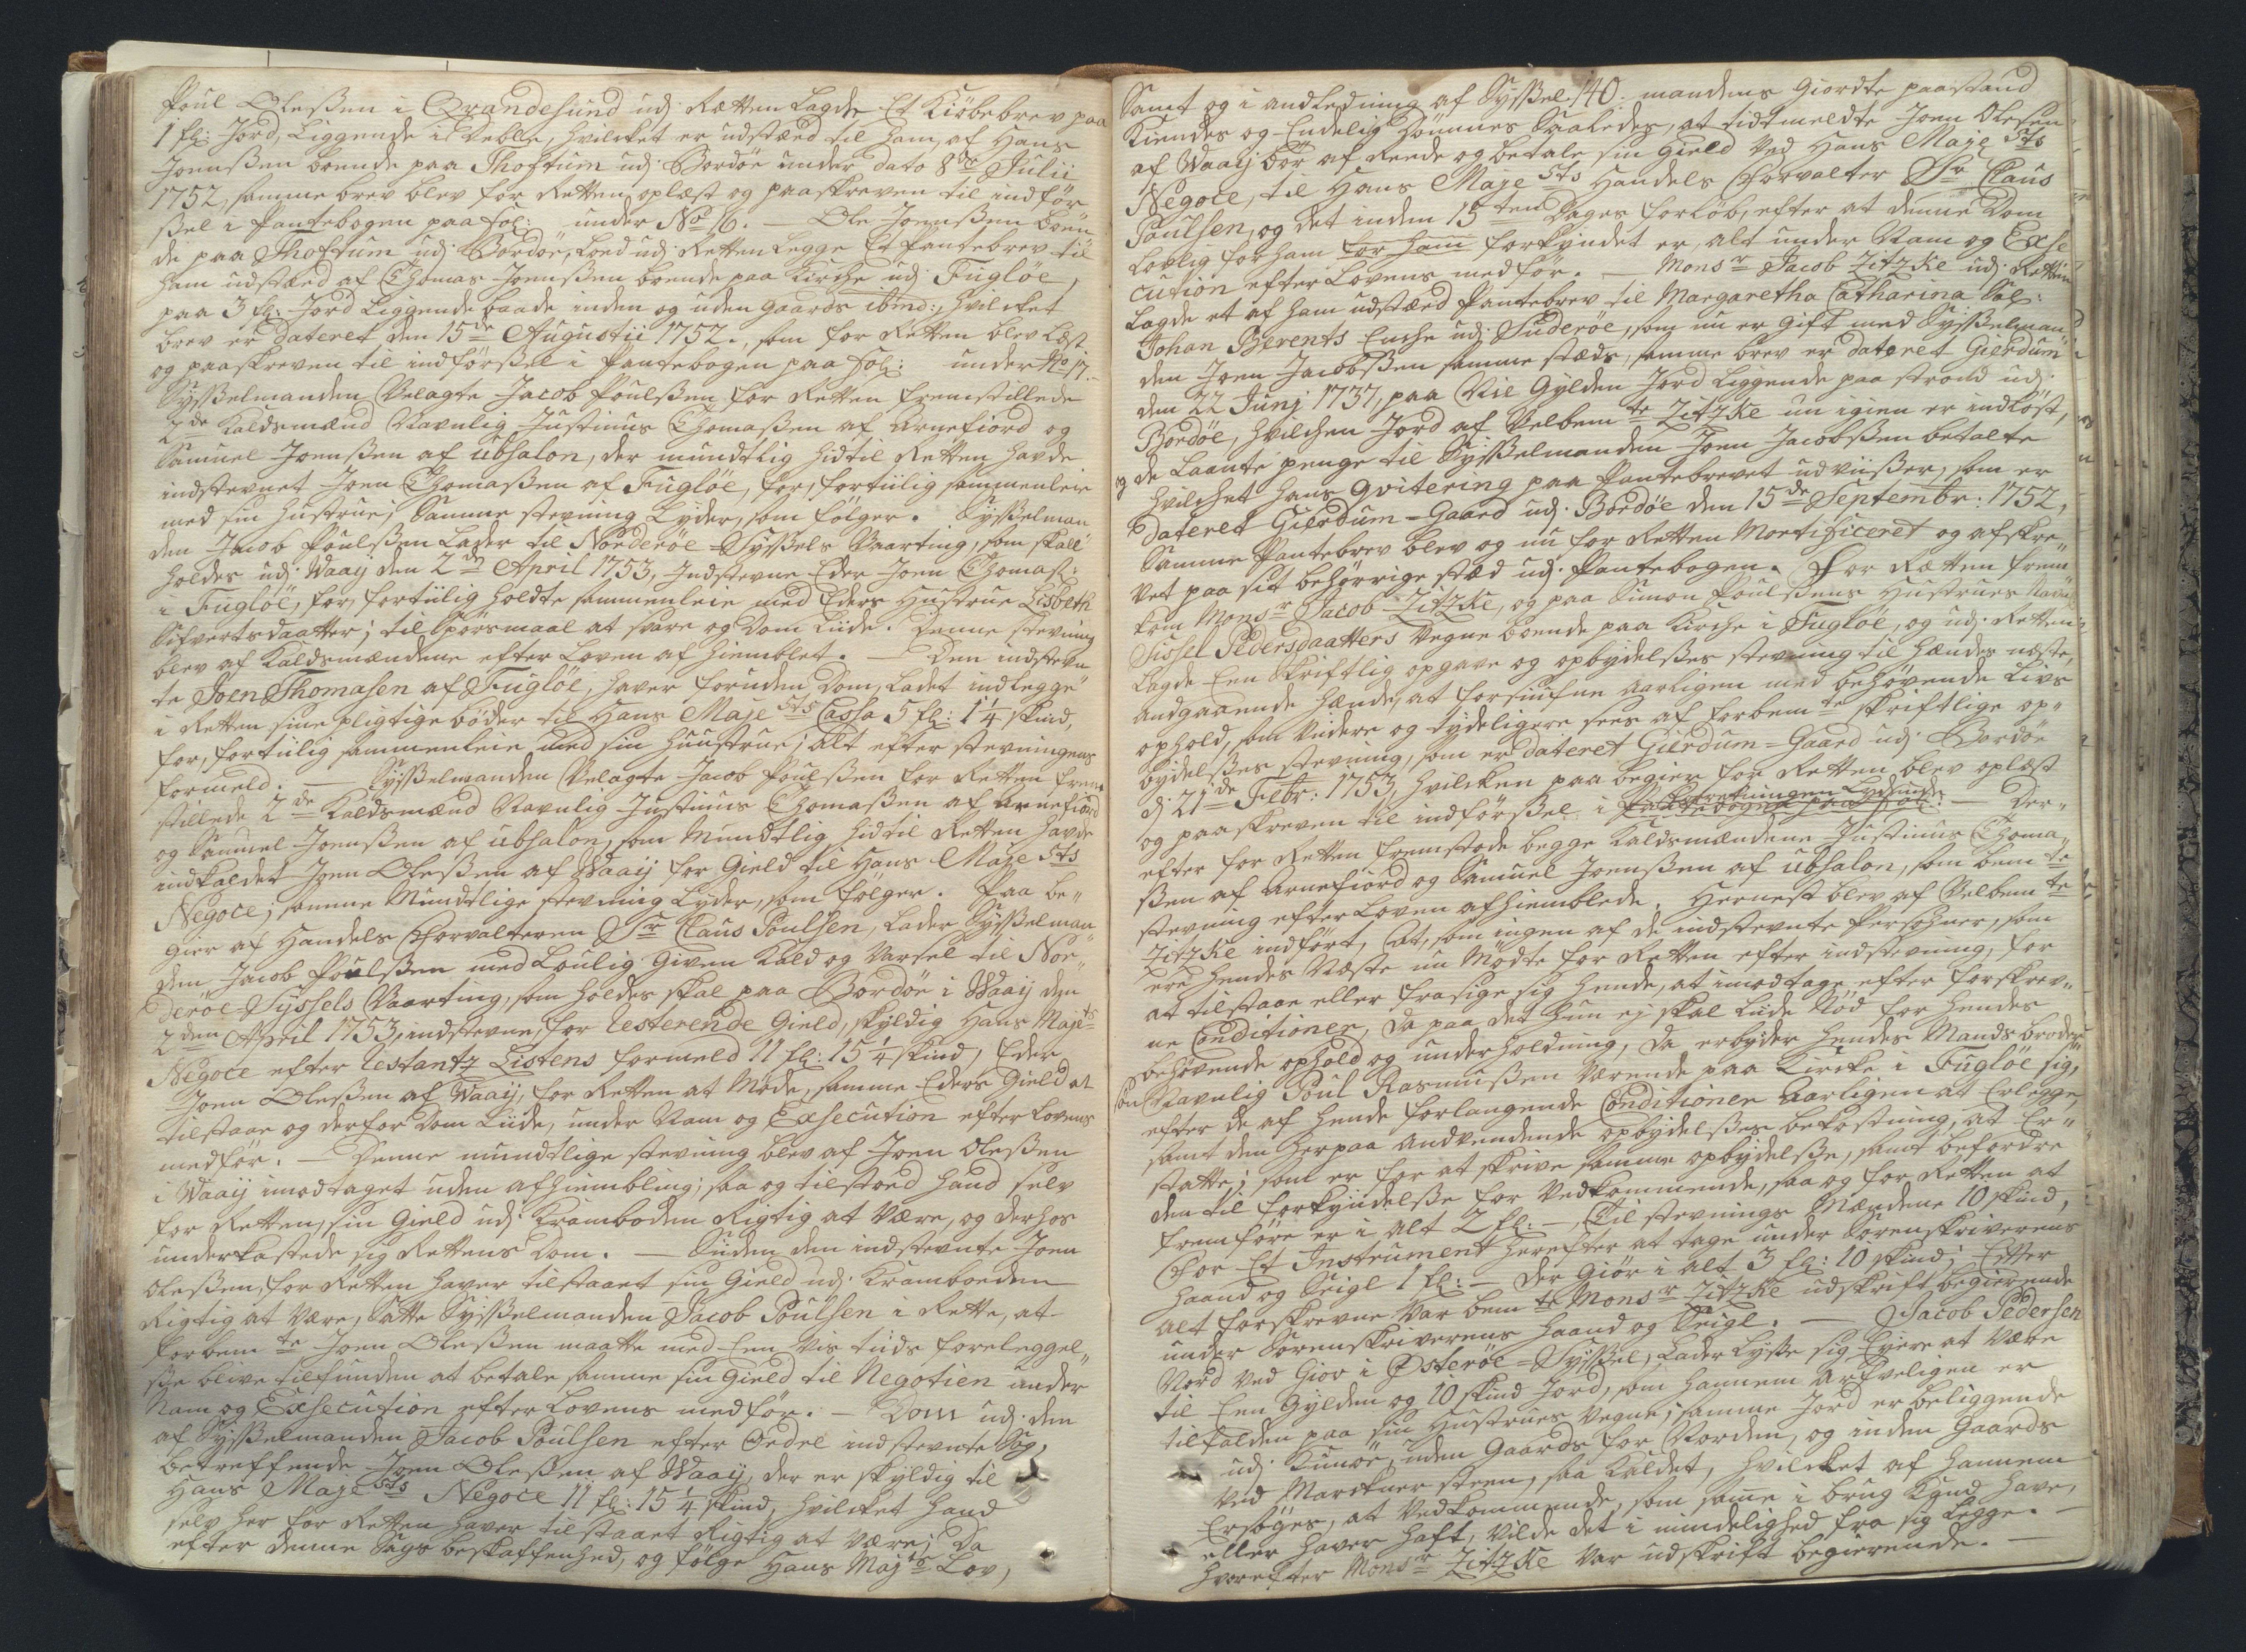 Poul Oleßen i Qvandesund udj Rætten Lagde Et Kiöbebrev paa
1 fl: Jord, Liggende i Deble, hvilcket er udstæed til ham, af Hans
Joenßen boende paa Thoftum udj Bordöe under dato 8de Julii
1752, samme brev blev for Retten oplæst og paaskreven til indför
ßel i Pantebogen paa fol: under No 16. — Ole Joenßen boen
de paa Thoftum udj Bordöe, Loed udj Retten Legge Et Pantebrev til
ham udstæed af Thomas Joenßen boende paa Kirche udj Fuglöe,
paa 3 fl: Jord Liggende baade inden og uden gaards ibmd:, hvilcket
brev er dateret den 15de Augustii 1752., som for Retten blev Læst
og paaskreven til indförßel i Pantebogen paa fol: under No 17.
Sysselmanden Velagte Jacob Poulßen for Retten fremstillede
2de Kaldsmænd Navnlig Justinus Thomaßen af Arnefiord og
Samuel Joenßen af ubsalon, der mundtlig hidtil Retten havde
indstevnet Joen Thomaßen af Fuglöe, for, fortiilig sammenleie
med sin hustrue; Samme stevning Lyder, som fölger. Sysselman
den Jacob Poulßen Lader til Norderöe-Syßels Vaarting, som skall
holdes udj Waaij den 2den April 1753, Indstevne Eder Joen Thomaß:
i Fuglöe, for, fortiilig holdte sammenleie med Eders Hustrue Lisbeth
Sivertsdaatter; til Spörsmaal at svare og Dom Liide. Denne stevning
blev af Kaldsmændene efter Loven afhiemblet. — Den indstevn
te Joen Thomasen af Fuglöe, haver foruden Dom, Ladet indlegge
i Retten sine pligtige böder til Hans Majests Cassa 5 fl: 1 1/4 skind,
for, fortiilig sammenleie med sin huustrue; alt efter stevningens
formeld. — Sysselmanden Velagte Jacob Poulßen for Retten frem
stillede 2de Kaldsmænd Navnlig Justinus Thomaßen af Arnefiord
og Samuel Joenßen af ubsalon, som Mundtlig hidtil Retten havde
indkaldet Joen Oleßen af Waaij for Gield til Hans Majests
Negoce; samme Mundtlige stevning Lyder, som fölger. Paa be„
gier af Handels Forvalteren Sr Claus Poulsen, Lader Sysselman
den Jacob Poulßen med Loulig Given Kald og Varsel til Nor„
deröe Syssels Vaarting, som holdes skal paa Bordöe i Waaij den
2den April 1753, indstevne, for Resterende Gield, skyldig Hans Majts
Negoce efter Restantz Listens formeld 11 fl: 15 1/4 skind, Eder
Joen Oleßen af Waaij, for Retten at Möde, samme Eders Gield at
tilstaae og derfor Dom Liide, under Nam og Exsecution efter Lovens
medför. — Denne mundtlige stevning blev af Joen Oleßen
i Waaij imodtaget uden afhiembling; saa og tilstoed hand selv
for Retten, sin Gield udj Kramboden Rigtig at Være, og derhos
underkastede sig Rettens Dom. — Siiden den indstevnte Joen
Oleßen, for Retten haver tilstaaet sin Gield udj Kramboeden
Rigtig at Være, Satte Sysselmanden Jacob Poulsen i Rette, at
forbemte Joen Oleßen maatte med Een Vis tids foreleggel„
sße blive tilfunden at betale samme sin Gield til Negotien under
Nam og Exsecution efter Lovens medför. — Dom udj den
af Sysselmanden Jacob Poulsen efter Ordre indstevnte Sag,
betreffende Joen Oleßen af Waaij, der er skyldig til
Hans Majests Negoce 11 fl: 15 1/4 skind, hvilcket hand
selv her for Retten haver tilstaaet Rigtig at Være; Da
efter denne Sags beskaffenhed, og fölge Hans Majts Lov,
140.
Samt og i andledning af Sysselmandens Giordte paastand
Kiendes og Endelig Dömmes Saaledes, at tidtmeldte Joen Olesen
af Waaij bör af Reede og betale sin Gield Ved Hans Majests
Negoce, til Hans Majests Handels Forvalter Sr Claus
Poulsen, og det inden 15ten Dages forlöb, efter at denne Dom
Lovlig for ham for ham forkyndet er, alt under Nam og Exse
cution efter Lovens medför. — Monsr Jacob Zitzke udj Retten
Lagde et af ham udstæed Pantebrev til Margaretha Catharina Sal:
Johan Berents Enche udj Suderöe, som nu er Gift med Sysselman
den Joen Jacobßen samme stæds, samme brev er dateret Gierdum
den 22 Junj 1737, paa Nie Gylden Jord Liggende paa strand udj
Bordöe, hvilchen Jord af Velbemte Zitzke nu igien er indlöst,
og de Laante penge til Sysselmanden Joen Jacobßen betalte
hvilchet hans Qvitering paa Pantebrevet udviißer, som er
dateret Gierdum-Gaard udj Bordöe den 15de Septembr: 1752,
Samme Pantebrev blev og nu for Retten Mortificeret og afskre„
vet paa sit behörrige stæd udj Pantebogen. For Rætten frem
kom Monsr Jacob Zitzke, og paa Simon Poulßens Hustrues Navnl:
Sissel Pedersdaatters Vegne boende paa Kirche i Fuglöe, og udj Retten
Lagde Een skriftlig opgave og opbydelßes stevning til hændes næste,
andgaaende hænde, at forsiufne aarligen med behövende Livs
ophold, som Videre og tydeligere sees af forbemte skriftlige op„
bydelßes stevning, som er dateret Gierdum-Gaard udj Bordöe
d: 21de Febr: 1753, hvilcken paa begier for Retten blev oplæst
og paaskreven til indförßel i Pantebogen paa fol: — Der„
efter for Retten fremstode begge Kaldsmændene Justinus Thoma„
ßen af Arnefiord og Samuel Joenßen af ubsalon, som bemte
stevning efter Loven afhiemblede. Hernest blev af Velbemte
Zitzke indfört, at, som ingen af de indstevnte Persohner, som
ere hendes Næste nu Mödte for Retten efter indstevning, for
at tilstaae eller frasige sig hende, at imodtage efter forskrev„
ne Conditioner, Da paa det hun ej skal Liide Nöd for hendes
behövende ophold og underholdning, da erbyder hendes Mands broder
sön Navnlig Poul Rasmußen Værende paa Kirche i Fuglöe sig,
efter de af hende forlangende Conditioner aarligen at Erlegge,
samt den herpaa andvendende opbydelßes bekostning, at Er„
statte; som er for at skrive samme opbydelße, samt befordre
den til forkyndelße for Vedkommende, saa og for Retten at
fremföre er i alt 2 fl: —, Til stevnings Mændene 10 skind,
For Et Instrument herefter at tage under Sorenskriverens
haand og Seigl 1 fl: — Der Giör i alt 3 fl: 10 skind; Efter
alt forskrevne Var bemte Monsr Zitzke udskrift begierende
under Sorenskriverens haand og Seigl. — Jacob Pedersen
Nord Ved Giov i Østeröe-Syssel, Lader Lyse sig Eyere at Være
til Een Gylden og 10 skind Jord, som hannem arfveligen er
tilfalden paa sin Hustrues Vegne; samme Jord er beliggende
udj Kunöe, uden Gaards for Norden, og inden Gaards
Ved Marckuersteen, saa Kaldet, hvilcket af hannem
Ersöges, at Vedkommende, som same i brug Kand have,
eller haver haft, vilde det i mindelighed fra sig Legge. —
hvorefter Monsr Zitzke Var udskrift begierende. —